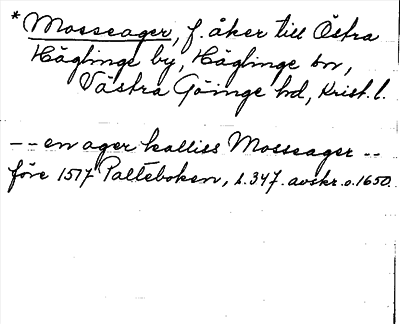 * Mosseager, f. åker till Östra
Häglinge by, Häglinge sn,
Västra Göinge hd, Krist. l.
-- en ager kalliss Mosseager --
före 1517 Palteboken, s. 347. avskr. o. 1650.